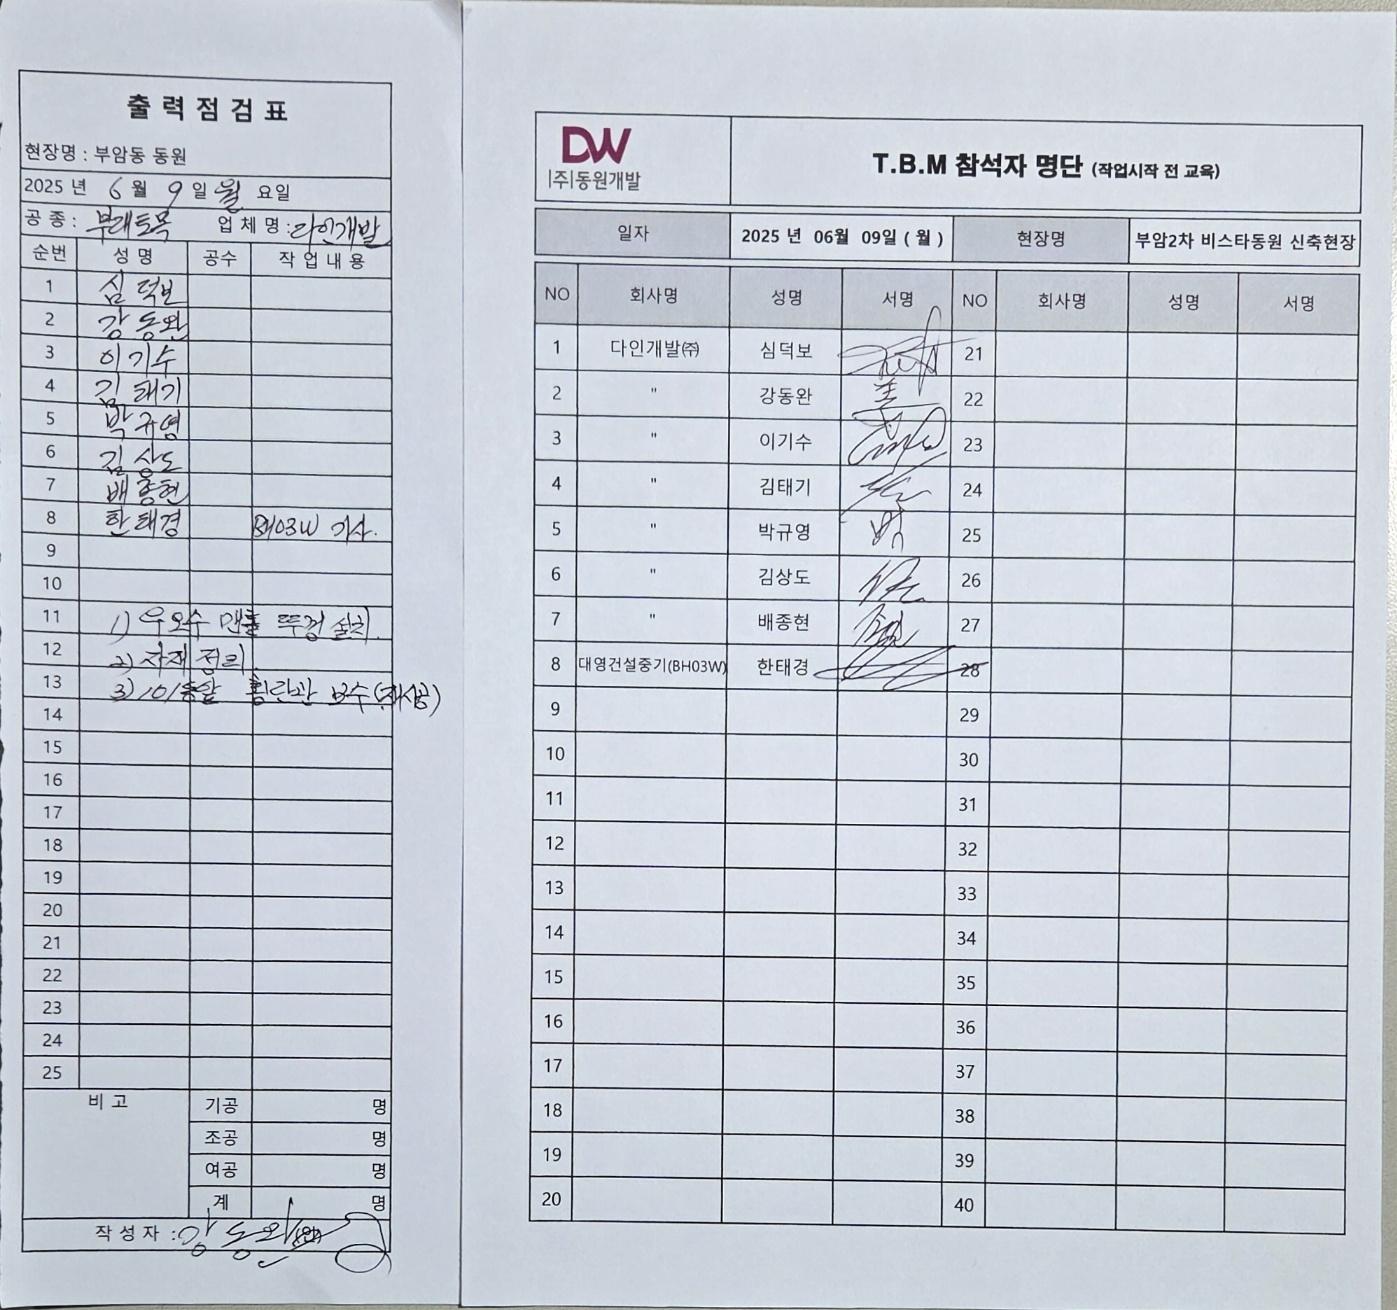 출력점검표
현장명 : 부암동 동원
2025 년 6 월 9 일 월 요일
공 종 : 부대토목 업 체 명 : 다인개발
순번 성 명 공수 작 업 내 용
1 심덕보
2 강동완
3 이기수
4 김태기
5 박규영
6 김상도
7 배종현
8 한태경 BH03W 기사.
9
10
11 1) 우오수 맨홀 뚜껑 설치
12 2) 자재 정리
13 3) 101동앞 횡란관 보수(재시공)
14
15
16
17
18
19
20
21
22
23
24
25
비 고
기공 명
조공 명
여공 명
계 명
작 성 자 : 강동완
DW
|주|동원개발
T.B.M 참석자 명단 (작업시작 전 교육)
일자 2025 년 06월 09일 ( 월 ) 현장명 부암2차 비스타동원 신축현장
NO 회사명 성명 서명 NO 회사명 성명 서명
1 다인개발㈜ 심덕보 21
2 " 강동완 22
3 " 이기수 23
4 " 김태기 24
5 " 박규영 25
6 " 김상도 26
7 " 배종현 27
8 대영건설중기(BH03W) 한태경 28
9 29
10 30
11 31
12 32
13 33
14 34
15 35
16 36
17 37
18 38
19 39
20 40